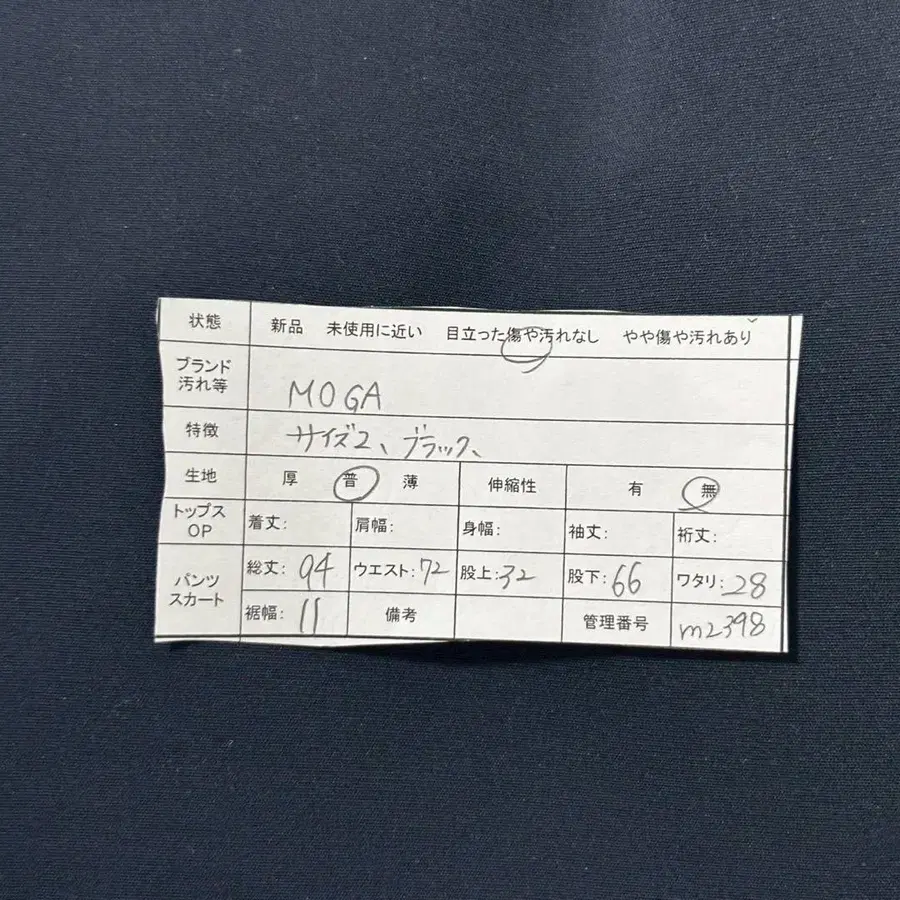 状態 新品 未使用に近い 目立った傷や汚れなし やや傷や汚れあり
ブランド
汚れ等 MOGA
特徴 サイズ2、ブラック、
生地 厚 普 薄 伸縮性 有 無
トップス
OP 着丈: 肩幅: 身幅: 袖丈: 裄丈:
パンツ
スカート 総丈: 94 ウエスト: 72 股上: 32 股下: 66 ワタリ: 28
裾幅: 11 備考 管理番号 m2398